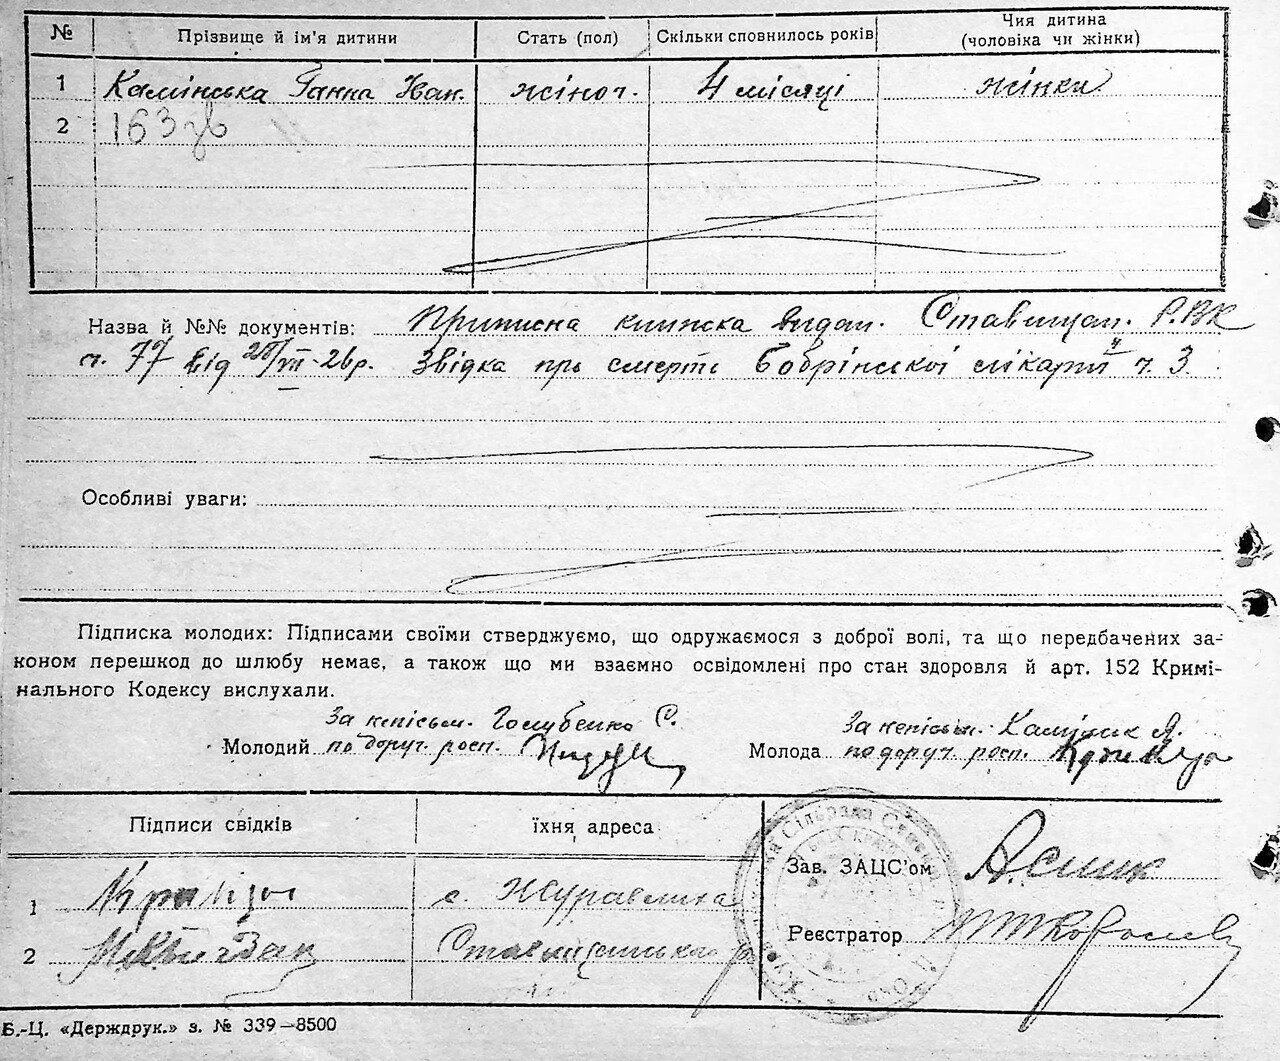 № Прізвище й ім'я дитини Стать (пол) Скільки сповнилось років Чия дитина (чоловіка чи жінки)
1 Камінська Ганна Іван. жіноч. 4 місяці жінки
2 163
Назва й №№ документів: Приписна книжка видан. Ставищан. Р.В.К
ч. 77 від 25/VII-26р. Звідка про смерть Бобрінської лікарні ч. 3
Особливі уваги:
Підписка молодих: Підписами своїми стверджуємо, що одружаємося з доброї волі, та що передбачених за-
коном перешкод до шлюбу немає, а також що ми взаємно освідомлені про стан здоровля й арт. 152 Кримі-
нального Кодексу вислухали.
За непісьм. Голубенко С. За непісьм. Камінськ Я.
Молодий по доруч. росп. Молода по доруч. росп.
Підписи свідків їхня адреса
Зав. ЗАЦС'ом
1 с. Журавлиха
Реєстратор
2 Ставищенського р
Б.-Ц. «Держдрук.» з. № 339—8500